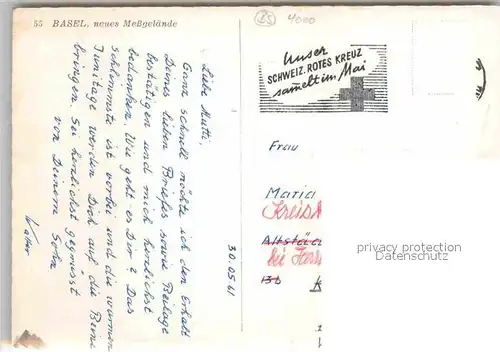 55 BASEL, neues Meßgelände
4000
Liebe Mutti,
Ganz schnell möchte ich den Erhalt
Deines lieben Briefes sowie Beilage
bestätigen und mich herzlichst
bedanken. Wie geht es Dir? Das
schlimmste ist vorbei und die warmen
Junitage werden Dich auf die Beine
bringen. Sei herzlichst gegrüsst
von Deinem Sohn
Walter
30.05.61
Unser
SCHWEIZ. ROTES KREUZ
sammelt im Mai
Frau
Maria
Altstä
bei
13b
privacy protection
Datenschutz